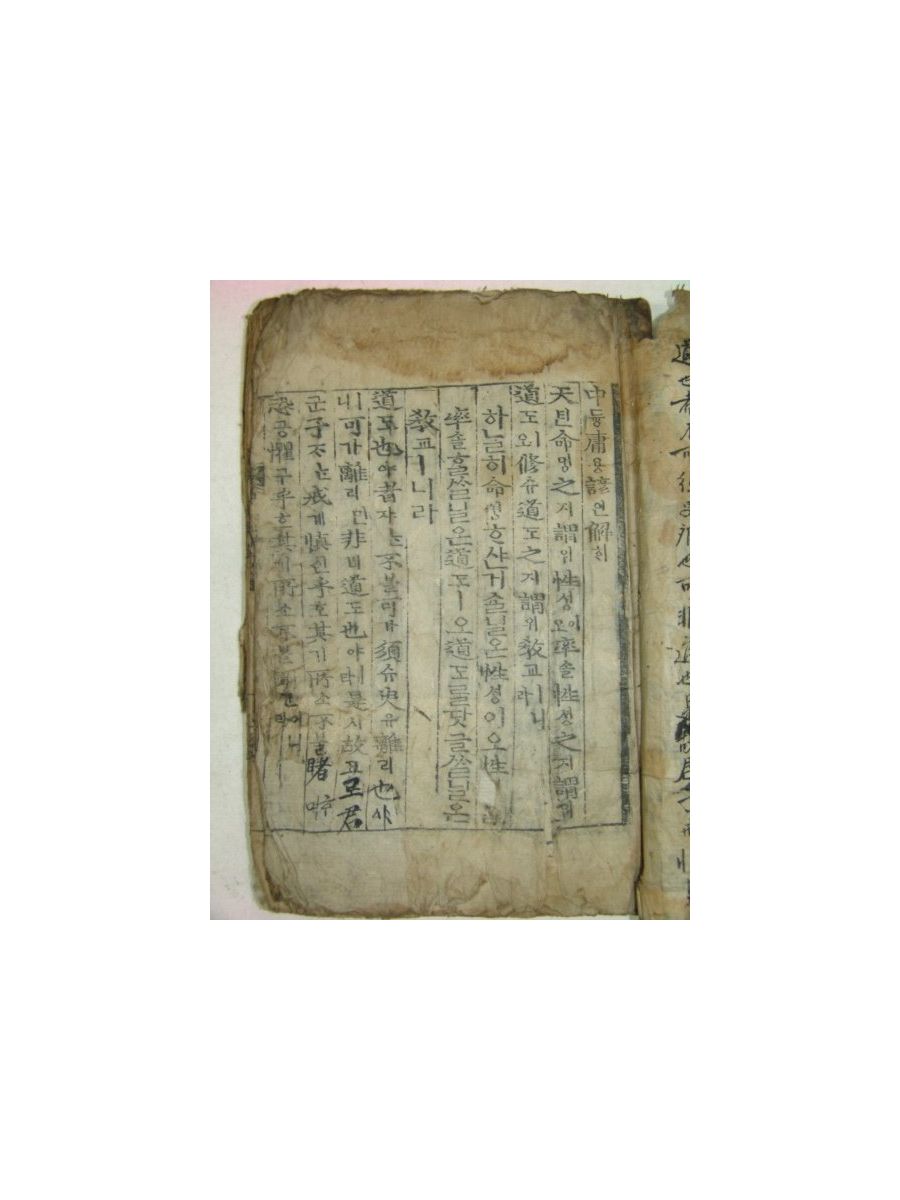 中듕庸용諺언解ᄒᆡ
天텬命명之지謂위性셩이오率솔性셩之지謂위
道도ㅣ오修슈道도之지謂위敎교ㅣ니라
하ᄂᆞᆯ히命명ᄒᆞ샨거ᄉᆞᆯ닐온性셩이오性
率솔ᄒᆞᆯᄊᆞᆯ닐온道도ㅣ오道도ᄅᆞᆯ닷글ᄊᆞᆯ닐온
敎교ㅣ니라
道도也야者쟈ᄂᆞᆫ不불可가須슈臾유離리也야
ㅣ니可가離리면非비道도也야ㅣ라是시故고로君
군子ᄌᆞᄂᆞᆫ戒계愼신乎호其기所소不불睹
恐공懼구乎호其기所소不불聞문이니
道也者不可須臾離也可 非道也是